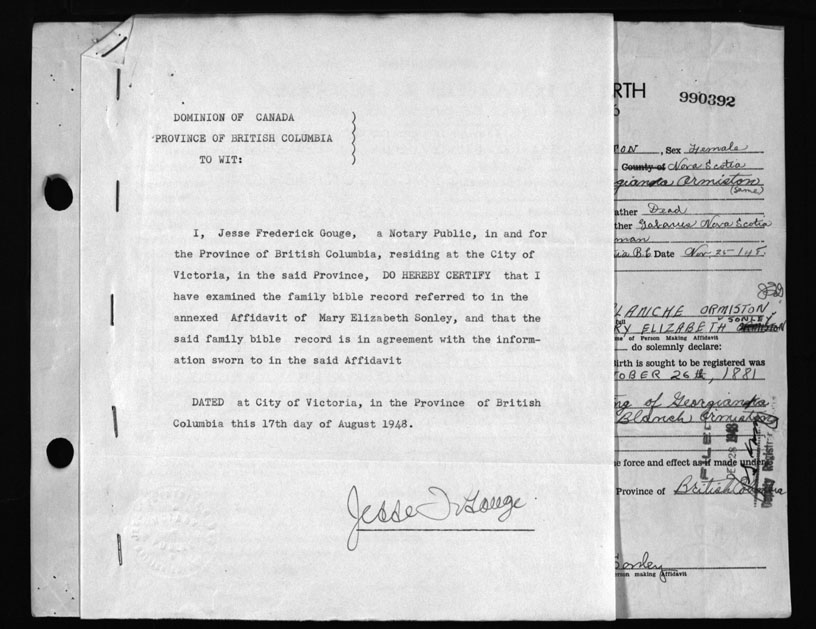 DOMINION OF CANADA
PROVINCE OF BRITISH COLUMBIA
TO WIT:
I, Jesse Frederick Gouge, a Notary Public, in and for
the Province of British Columbia, residing at the City of
Victoria, in the said Province, DO HEREBY CERTIFY that I
have examined the family bible record referred to in the
annexed Affidavit of Mary Elizabeth Sonley, and that the
said family bible record is in agreement with the inform-
ation sworn to in the said Affidavit
DATED at City of Victoria, in the Province of British
Columbia this 17th day of August 1948.
Jesse F Gouge
RTH
990392
TON, Sex Female
County of Nova Scotia
gianna Ormiston
(same)
ather Dead
ther Gabarus Nova Scotia
man
ia B.C Date Nov. 25-/48.
LANCHE ORMISTON
SONLEY
RY ELIZABETH ORMISTON
me of Person Making Affidavit
do solemnly declare:
irth is sought to be registered was
OBER 26th, 1881
ing of Georgianna
Blanch Ormiston
FILED
DEC 28 1948
Deputy Registrar
e force and effect as if made under
Province of British Columbia
Sonley
erson making Affidavit